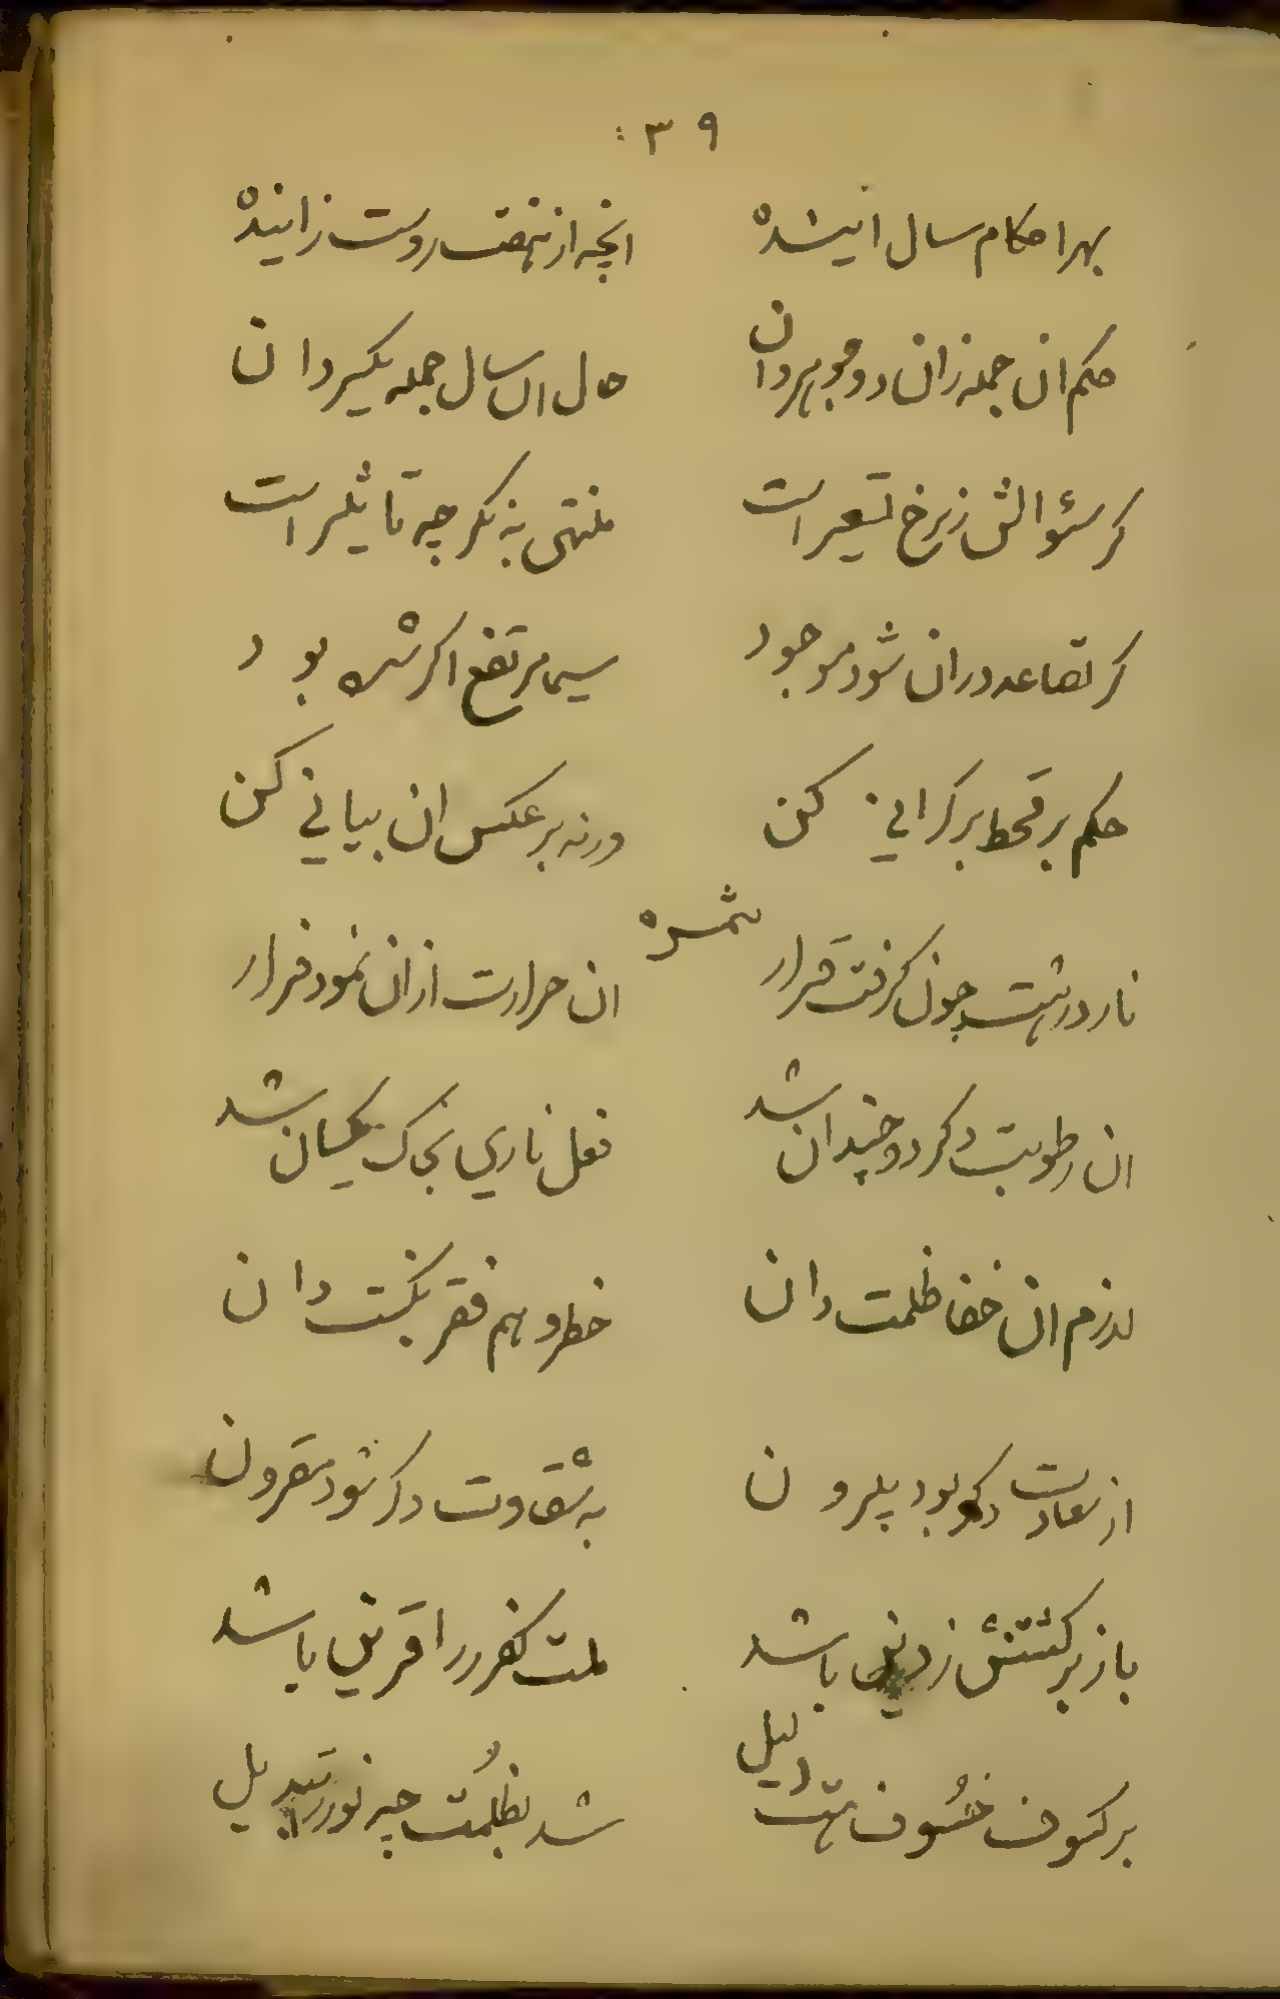 ۳۹
بهر احکام سال اینده انچه از نهفت روست زاینده
حکم ان جمله زان دو جو بردان حال ان سال جمله یکسر دان
کر سئوالش ز نرخ تسعیر است منتهی به نکر چه تاثیر است
کر تصاعد در ان شود موجود سیما مرتفع اکر شده بود
حکم بر قحط بر کرانی کن ورنه بر عکس ان بیانی کن
ثمره
نار در بیت چون کرفت قرار ان حرارت از ان نمود فرار
ان رطوبت دکر دو چندان شد فعل ناری بخاک یکسان شد
لازم ان خفا ظلمت دان خطر و هم فقر نکبت دان
از سعادت دکر بود بیرون به شقاوت دکر شود مقرون
باز برکشتنش ز دین باشد ملت کفر را قرین باشد
بر کسوف خسوف هست دلیل شد بظلمت چه نور تبدیل